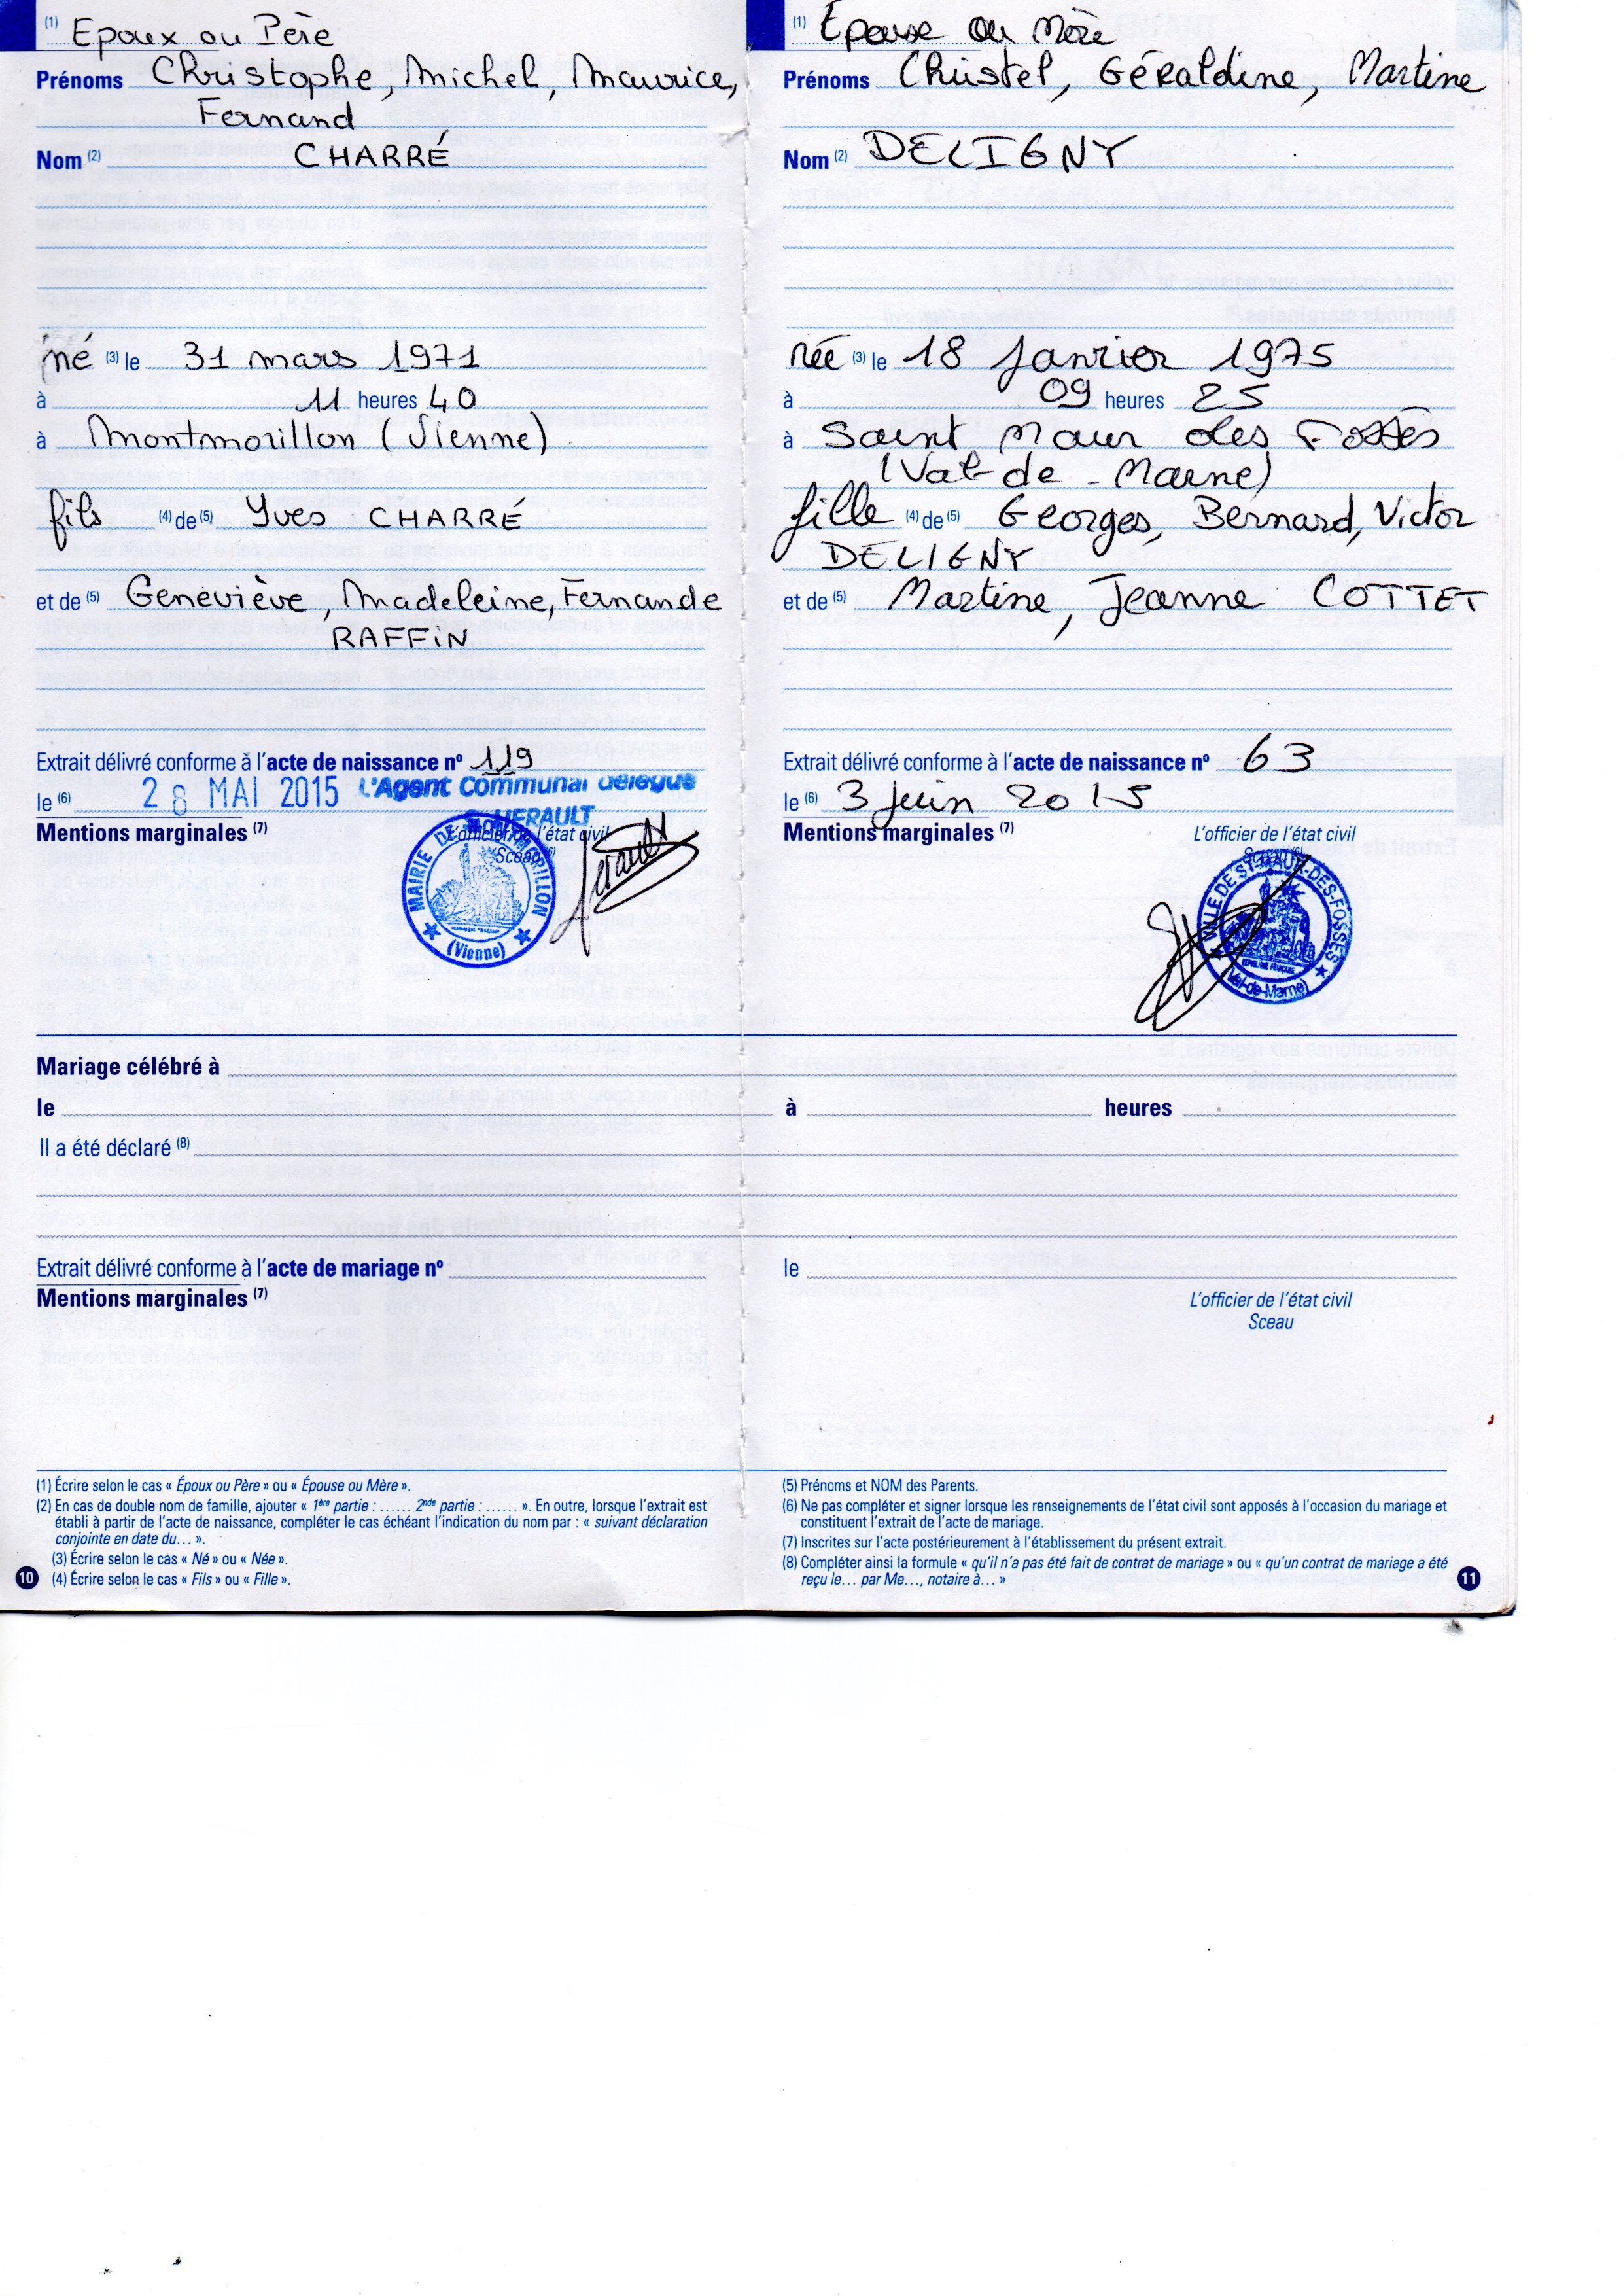 (1) Epoux ou Père
Prénoms Christophe, Michel, Maurice,
Fernand
Nom (2) CHARRÉ
né (3) le 31 mars 1971
à 11 heures 40
à Montmorillon (Vienne)
fils (4) de (5) Yves CHARRÉ
et de (5) Geneviève, Madeleine, Fernande
RAFFIN
Extrait délivré conforme à l'acte de naissance nº 119
le (6) 28 MAI 2015 L'Agent Communal délégué
HERAULT
Mentions marginales (7) L'officier de l'état civil
Sceau (6)
MAIRIE DE MONTMORILLON
(Vienne)
(1) Epouse ou Mère
Prénoms Christel, Géraldine, Martine
Nom (2) DELIGNY
née (3) le 18 janvier 1975
à 09 heures 25
à Saint Maur des Fossés
(Val-de-Marne)
fille (4) de (5) Georges, Bernard, Victor
DELIGNY
et de (5) Martine, Jeanne COTTET
Extrait délivré conforme à l'acte de naissance nº 63
le (6) 3 juin 2015
Mentions marginales (7) L'officier de l'état civil
Sceau (6)
VILLE DE ST-MAUR-DES-FOSSES
(Val-de-Marne)
Mariage célébré à
le à heures
Il a été déclaré (8)
Extrait délivré conforme à l'acte de mariage nº le
Mentions marginales (7) L'officier de l'état civil
Sceau
(1) Écrire selon le cas « Époux ou Père » ou « Épouse ou Mère ».
(2) En cas de double nom de famille, ajouter « 1ère partie : ...... 2nde partie : ...... ». En outre, lorsque l'extrait est
établi à partir de l'acte de naissance, compléter le cas échéant l'indication du nom par : « suivant déclaration
conjointe en date du... ».
(3) Écrire selon le cas « Né » ou « Née ».
10 (4) Écrire selon le cas « Fils » ou « Fille ».
(5) Prénoms et NOM des Parents.
(6) Ne pas compléter et signer lorsque les renseignements de l'état civil sont apposés à l'occasion du mariage et
constituent l'extrait de l'acte de mariage.
(7) Inscrites sur l'acte postérieurement à l'établissement du présent extrait.
(8) Compléter ainsi la formule « qu'il n'a pas été fait de contrat de mariage » ou « qu'un contrat de mariage a été
reçu le... par Me..., notaire à... » 11